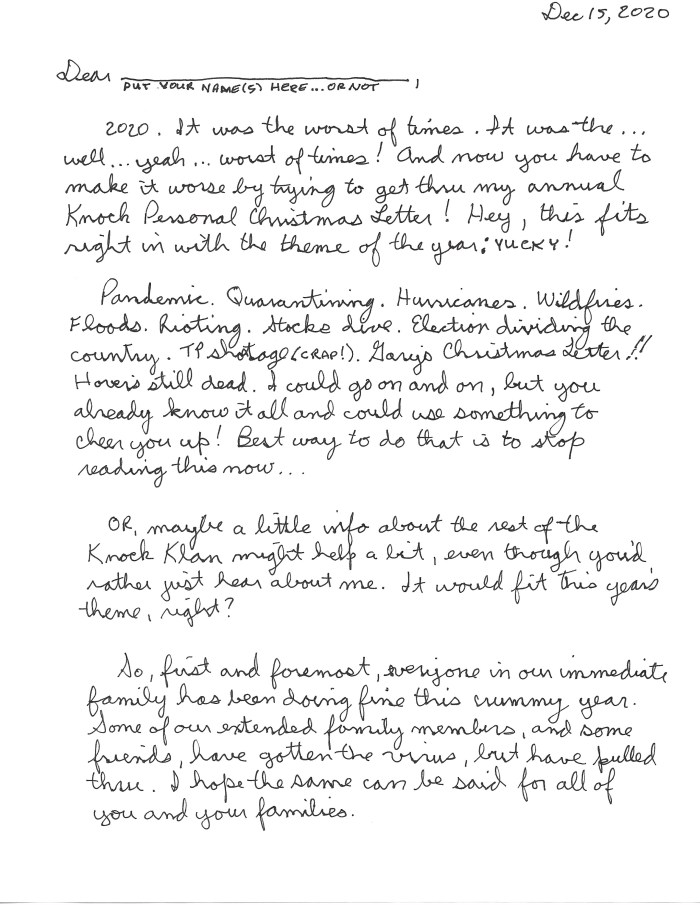 Dec 15, 2020
Dear ____________________,
PUT YOUR NAME(S) HERE... OR NOT
2020. It was the worst of times. It was the...
well... yeah... worst of times! And now you have to
make it worse by trying to get thru my annual
Knoch Personal Christmas Letter! Hey, this fits
right in with the theme of the year: YUCKY!
Pandemic. Quarantining. Hurricanes. Wildfires.
Floods. Rioting. Stocks dive. Election dividing the
country. TP shotage (CRAP!). Gary's Christmas Letter!!
Hover's still dead. I could go on and on, but you
already know it all and could use something to
cheer you up! Best way to do that is to stop
reading this now...
OR, maybe a little info about the rest of the
Knoch Klan might help a bit, even though you'd
rather just hear about me. It would fit this year's
theme, right?
So, first and foremost, everyone in our immediate
family has been doing fine this crummy year.
Some of our extended family members, and some
friends, have gotten the virus, but have pulled
thru. I hope the same can be said for all of
you and your families.